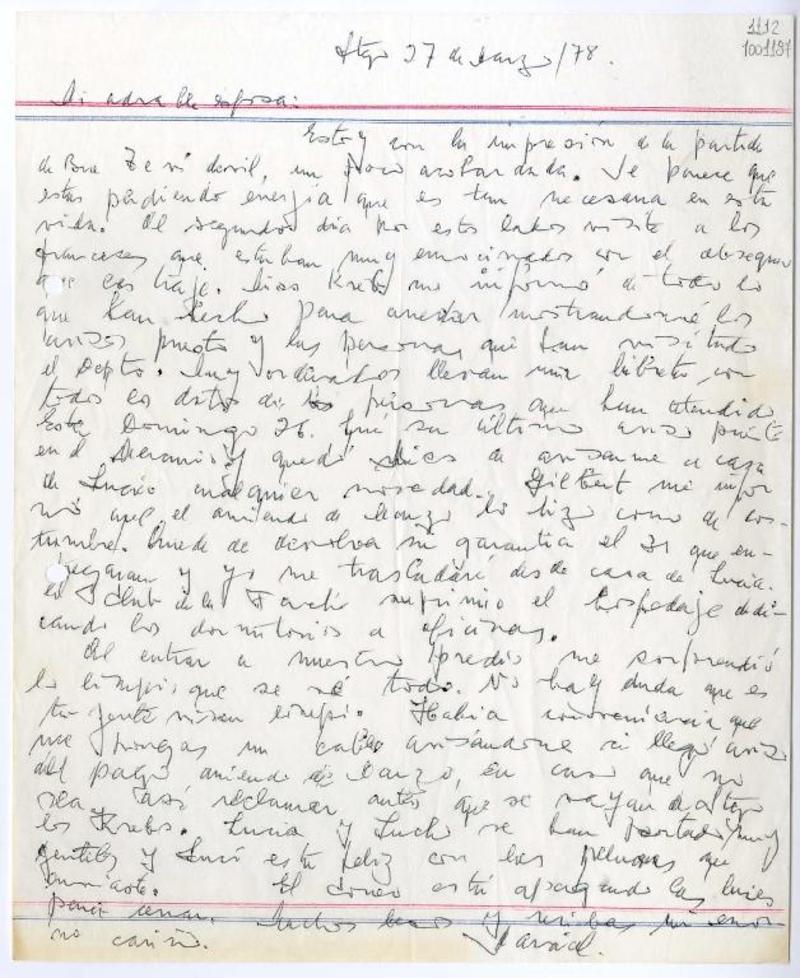 1112
1001187
Stgo 27 de Marzo/78.
Mi adorable esposa:
Estoy con la impresión de la partida
de Bova Te vi devil, un poco acobardada. Me parece que
estas perdiendo energía que es tan necesaria en esta
vida. Al segundo día por estos lados visité a los
franceses que estaban muy emocionados con el obsequio
que les traje. Krebs me informó de todo lo
que han hecho para arrendar mostrandome los
avisos puesto y las personas que han visitado
el Depto. Muy ordenados llevan una libreta con
todos los datos de las personas que han atendido
Este Domingo 26. fué su último aviso puesto
en el Mercurio y quedó de avisarme a casa
de Lucía cualquier novedad. Gilbert me infor
mó que el arriendo de Marzo lo hizo como de cos-
tumbre. Quede de devolver su garantía el 31 que en-
tregaran y yo me trasladaré desde casa de Lucía.
El Club de la suprimio el hospedaje dedi-
cando los dormitorios a oficinas.
Al entrar a nuestro predio me sorprendió
lo limpio que se ve todo. No hay duda que es
ta gente viven limpio. Habia conveniencia que
me pongas un cable avisándome si llegó aviso
del pago arriendo de Marzo, en caso que no
sea, así reclamar antes que se vayan de Stgo
los Krebs. Lucía y Lucho se han portado muy
gentiles y Luci está feliz con las pelucas que
enviaste. El correo está apagando las luces
para cerrar. Muchos besos y recibas mi enor-
me cariño.